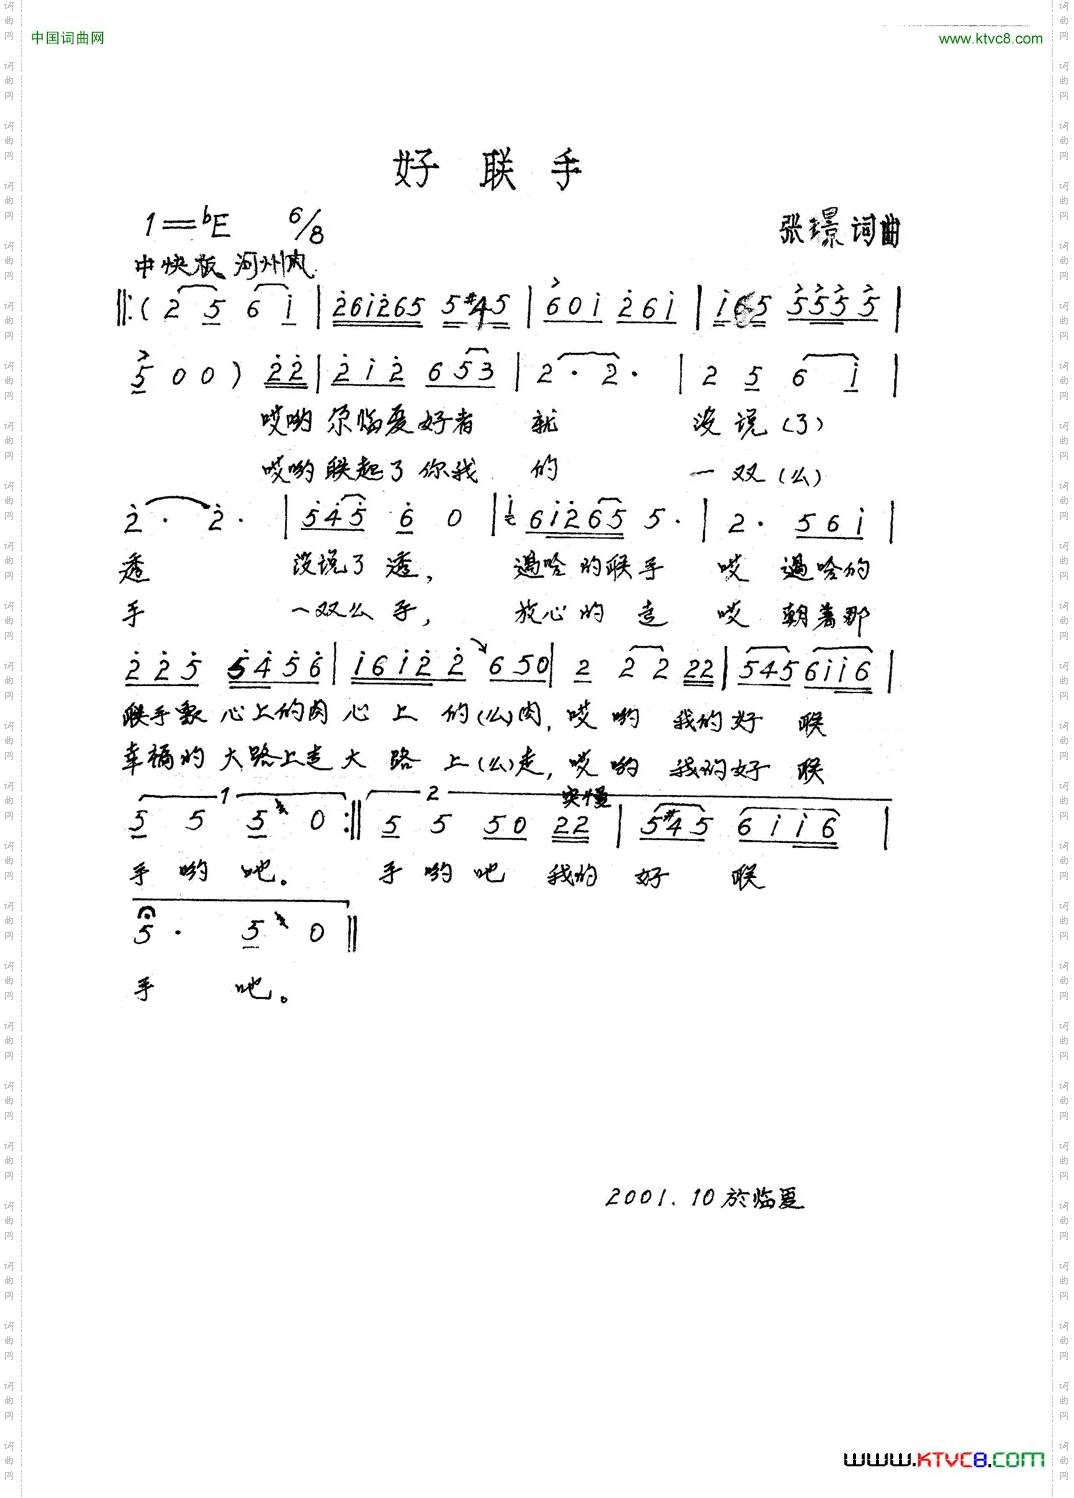 中国词曲网 www.ktvc8.com
好 联 手
1=bE 6/8
张璟 词曲
中快板 河州风
‖:( 2 5 6 i | 26i265 5#45 | 60i 26i | i65 5555 |
5 0 0 ) 22 | 2 i 2 6 53 | 2 · 2 · | 2 5 6 i |
哎哟 尕临夏好者 就 没 说 (了)
哎哟 联起了你我 的 一 双 (么)
2 · 2 · | 545 6 0 | i 6i265 5 · | 2 · 5 6 i |
透 没说了透, 遇哈的联手 哎 遇哈的
手 一双么手, 放心的 走 哎 朝着那
2 2 5 5456 | i6i2 2 650 | 2 22 22 | 545 6ii6 |
联手 心上的肉 心 上 的(么)肉, 哎 哟 我的好 联
幸福的 大路上走大 路 上(么)走, 哎 哟 我的好 联
1 2 突慢
5 5 5 0 :‖ 5 5 50 22 | 5#45 6ii6 |
手 哟 吧。 手哟吧 我的 好 联
5 · 5 0 ‖
手 吧。
2001.10於临夏
www.KTVC8.com